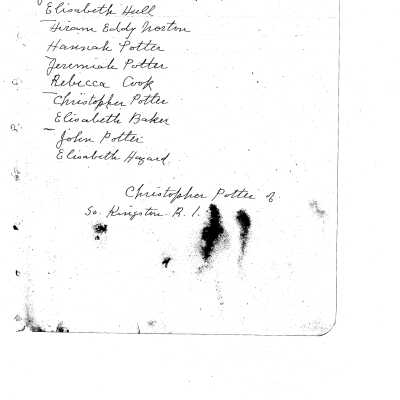 Elisabeth Hull
Hiram Eddy Norton
Hannah Potter
Jeremiah Potter
Rebecca Cook
Christopher Potter
Elisabeth Baker
John Potter
Elisabeth Hazard
Christopher Potter of
So. Kingston R. I.